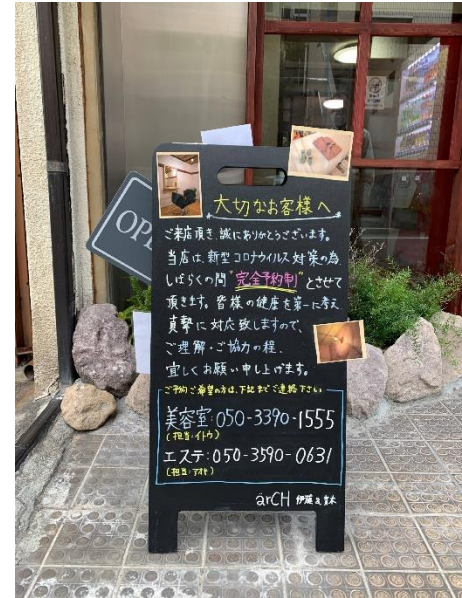 OPE
大切なお客様へ
ご来店頂き、誠にありがとうございます。
当店は、新型コロナウイルス対策の為
しばらくの間"完全予約制"とさせて
頂きます。皆様の健康を第一に考え
真摯に対応致しますので、
ご理解・ご協力の程、
宜しくお願い申し上げます。
ご予約ご希望の方は、下記までご連絡下さい
美容室:050-3390-1555
(担当:イトウ)
エステ:050-3590-0631
(担当:アオキ)
arCH 伊藤&青木